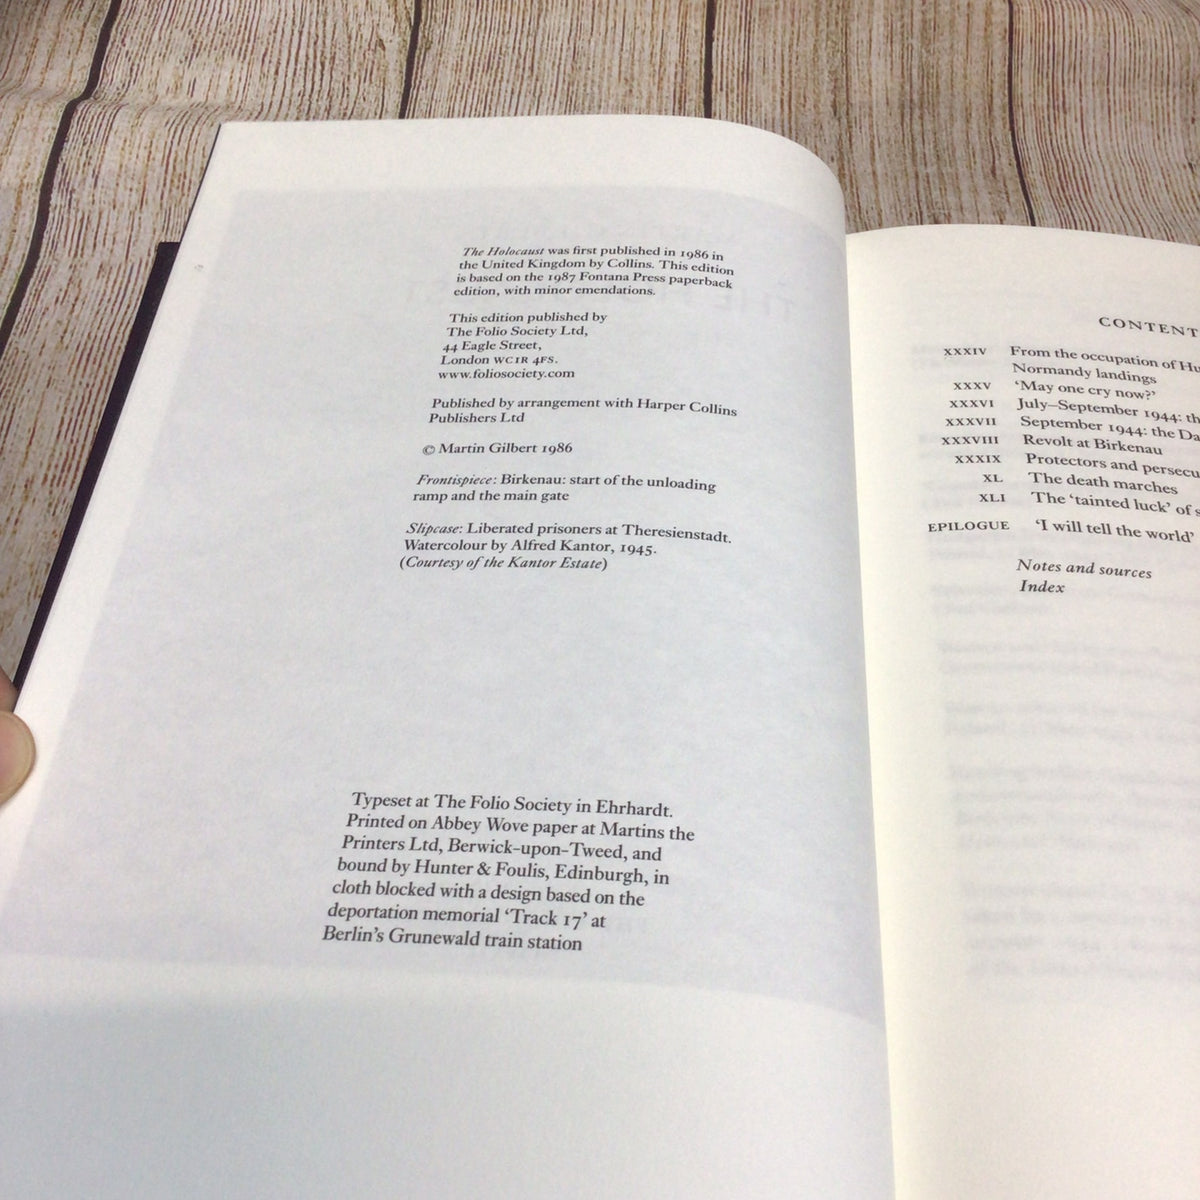 The Holocaust was first published in 1986 in
the United Kingdom by Collins. This edition
is based on the 1987 Fontana Press paperback
edition, with minor emendations.
This edition published by
The Folio Society Ltd,
44 Eagle Street,
London WC1R 4FS.
www.foliosociety.com
Published by arrangement with Harper Collins
Publishers Ltd
© Martin Gilbert 1986
Frontispiece: Birkenau: start of the unloading
ramp and the main gate
Slipcase: Liberated prisoners at Theresienstadt.
Watercolour by Alfred Kantor, 1945.
(Courtesy of the Kantor Estate)
Typeset at The Folio Society in Ehrhardt.
Printed on Abbey Wove paper at Martins the
Printers Ltd, Berwick-upon-Tweed, and
bound by Hunter & Foulis, Edinburgh, in
cloth blocked with a design based on the
deportation memorial ‘Track 17’ at
Berlin’s Grunewald train station
CONTENT
XXXIV From the occupation of Hu
Normandy landings
XXXV ‘May one cry now?’
XXXVI July–September 1944: th
XXXVII September 1944: the Da
XXXVIII Revolt at Birkenau
XXXIX Protectors and persecu
XL The death marches
XLI The ‘tainted luck’ of s
EPILOGUE ‘I will tell the world’
Notes and sources
Index